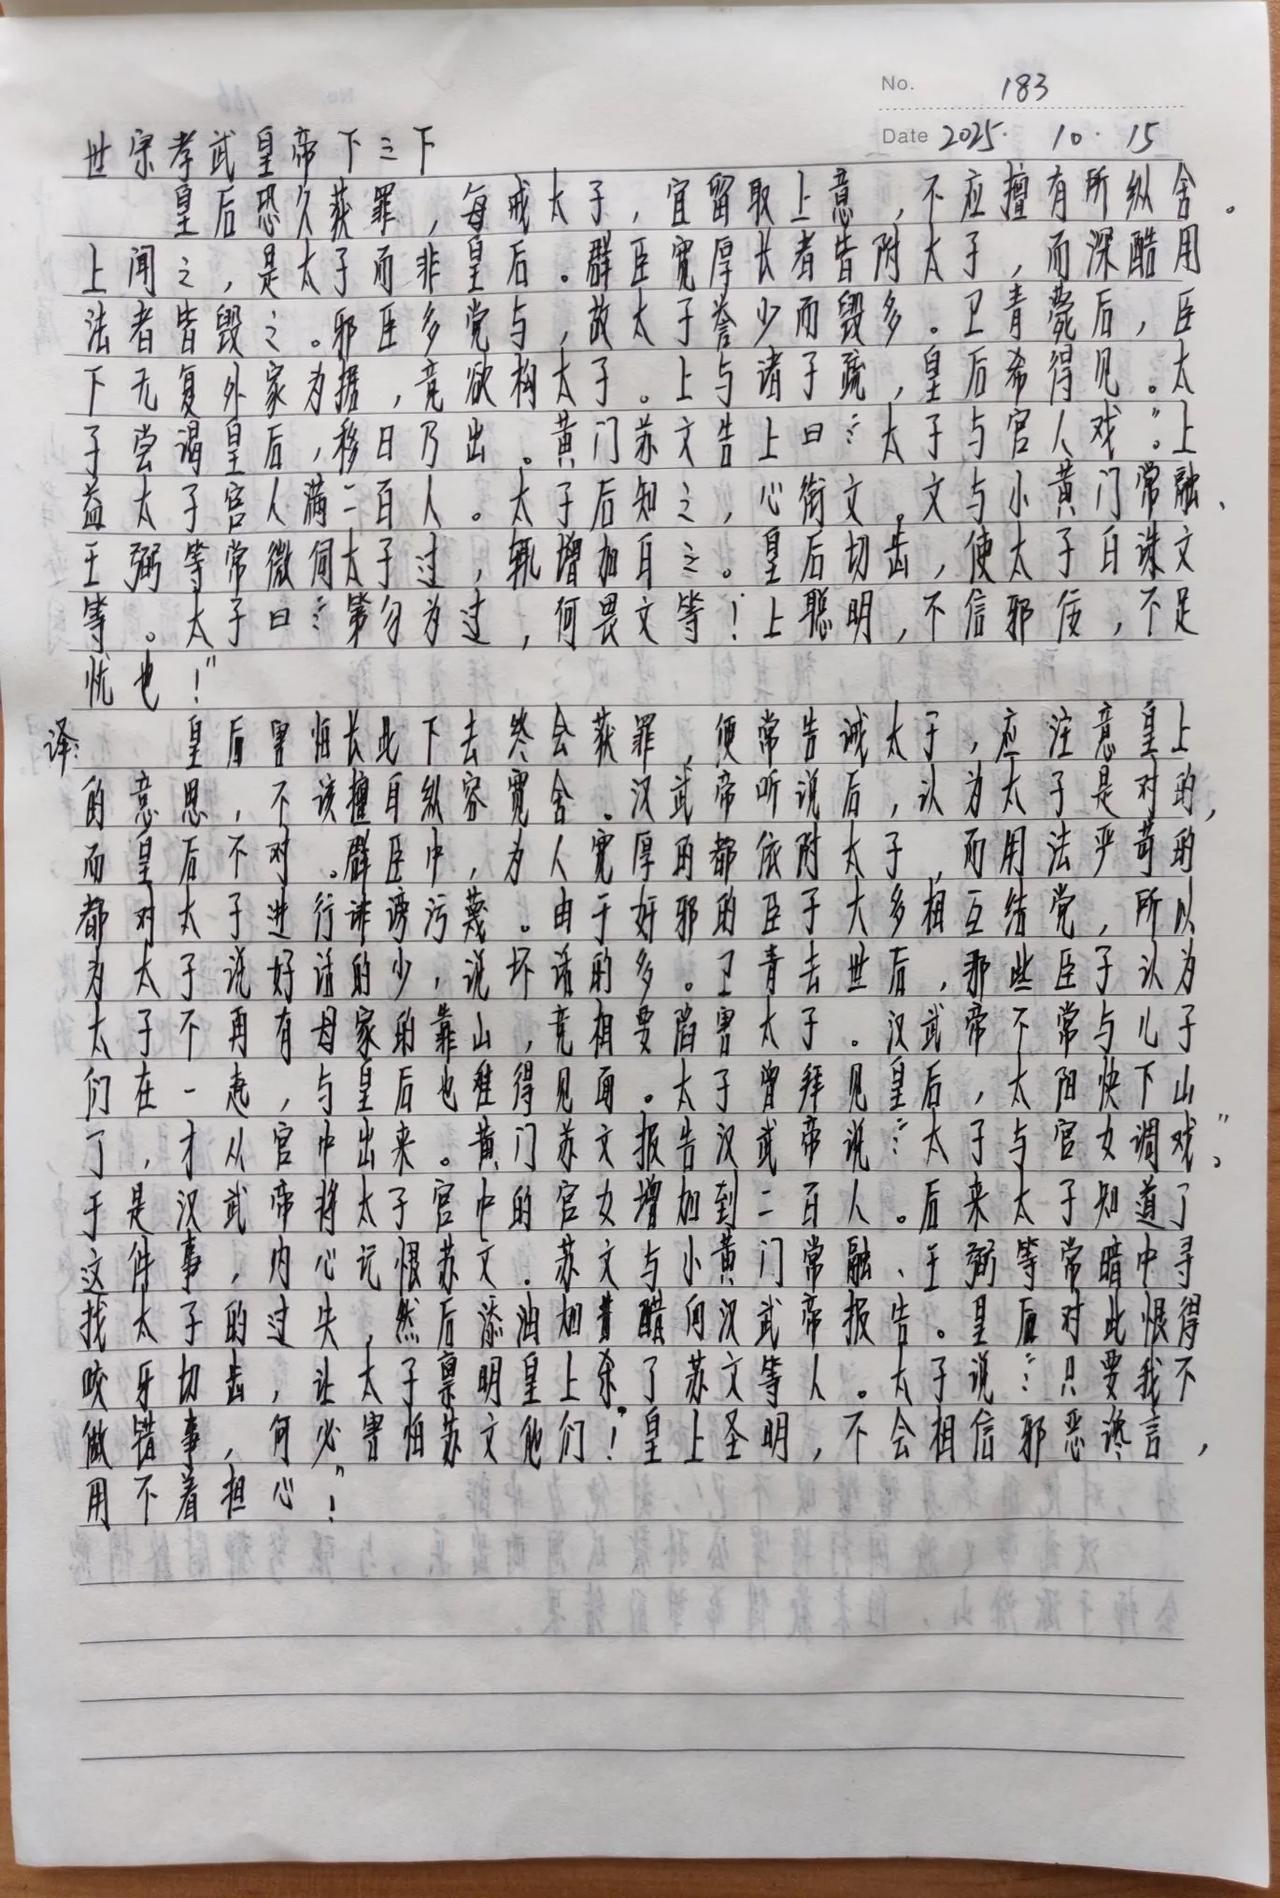 No. 183
Date 2025. 10. 15
世宗孝武皇帝下之下
皇后恐久获罪，每戒太子，宜留取上意，不应擅有所纵舍。
上闻之，是太子而非皇后。群臣宽厚长者皆附太子，而深酷用
法者皆毁之。邪臣多党与，故太子誉少而毁多。卫青薨后，臣
下无复外家为据，竞欲构太子。上与诸子疏，皇后希得见。太
子尝谒皇后，移日乃出。黄门苏文告上曰："太子与宫人戏"。上
益太子宫人满二百人。太子后知之，心衔文。文与小黄门常融、
王弼等常微伺太子过，辄增加白之。皇后切齿，使太子白诛文
等。太子曰："第勿为过，何畏文等！上聪明，不信邪佞，不足
忧也！"
译：皇后害怕长此下去终会获罪，便常告诫太子，应注意皇上
的意思，不该擅自纵容宽舍。汉武帝听说后，认为太子是对的，
而皇后不对。群臣中，为人宽厚的都依附太子，而用法严苛的
都对太子进行诽谤污蔑。由于奸邪的臣子大多相互结党，所以
为太子说好话的少，说坏话的多。卫青去世后，那些臣子认为
太子不再有母家的靠山，竞相要陷害太子。汉武帝不常与儿子
们在一起，与皇后也难得见面。太子曾拜见皇后，太阳快下山
了，才从宫中出来。黄门苏文报告汉武帝说："太子与宫女调戏"。
于是汉武帝将太子宫中的宫女增加到二百人。后来太子知道了
这件事，内心记恨苏文．苏文与小黄门常融、王弼等常暗中寻
找太子的过失，然后添油加醋向汉武帝报告。皇后对此恨得
咬牙切齿，让太子禀明皇上杀了苏文等人。太子说："只要我不
做错事，何必害怕苏文他们！皇上圣明，不会相信邪恶谗言，
用不着担心！"